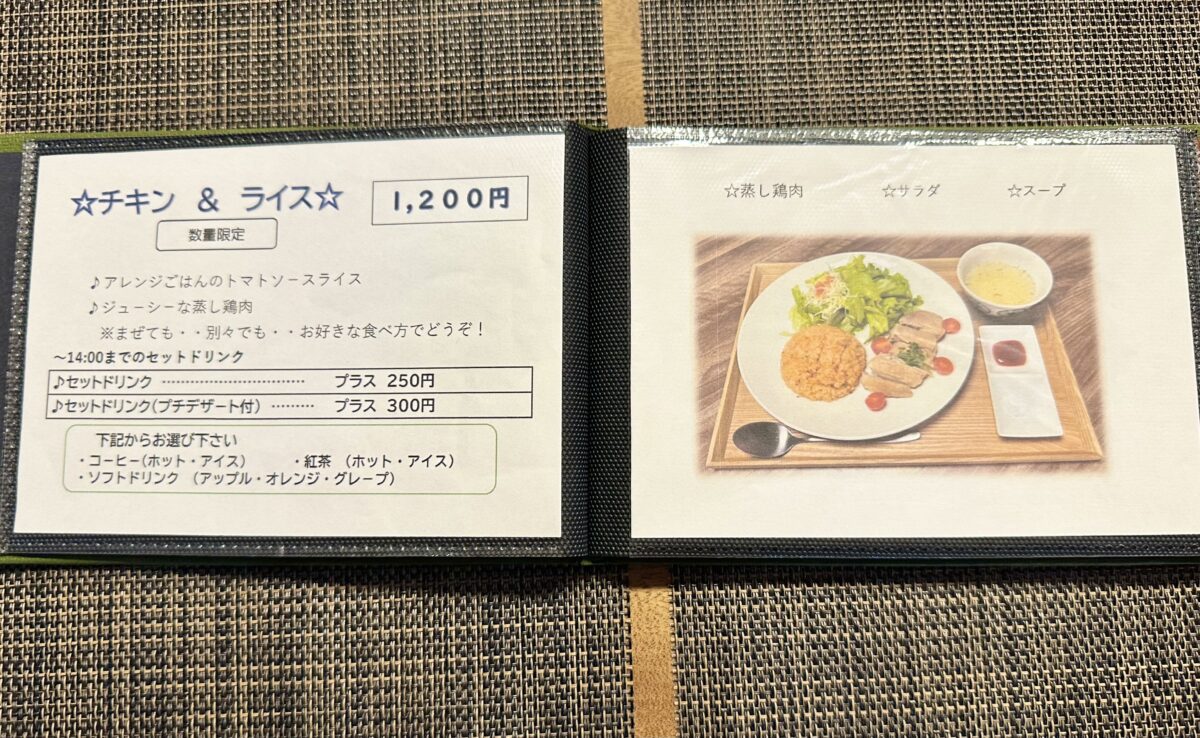 ☆チキン ＆ ライス☆
1,200円
数量限定
♪アレンジごはんのトマトソースライス
♪ジューシーな蒸し鶏肉
※まぜても・・別々でも・・お好きな食べ方でどうぞ！
～14:00までのセットドリンク
♪セットドリンク ………………………… プラス 250円
♪セットドリンク(プチデザート付) ……… プラス 300円
下記からお選び下さい
・コーヒー(ホット・アイス) ・紅茶 (ホット・アイス)
・ソフトドリンク (アップル・オレンジ・グレープ)
☆蒸し鶏肉 ☆サラダ ☆スープ